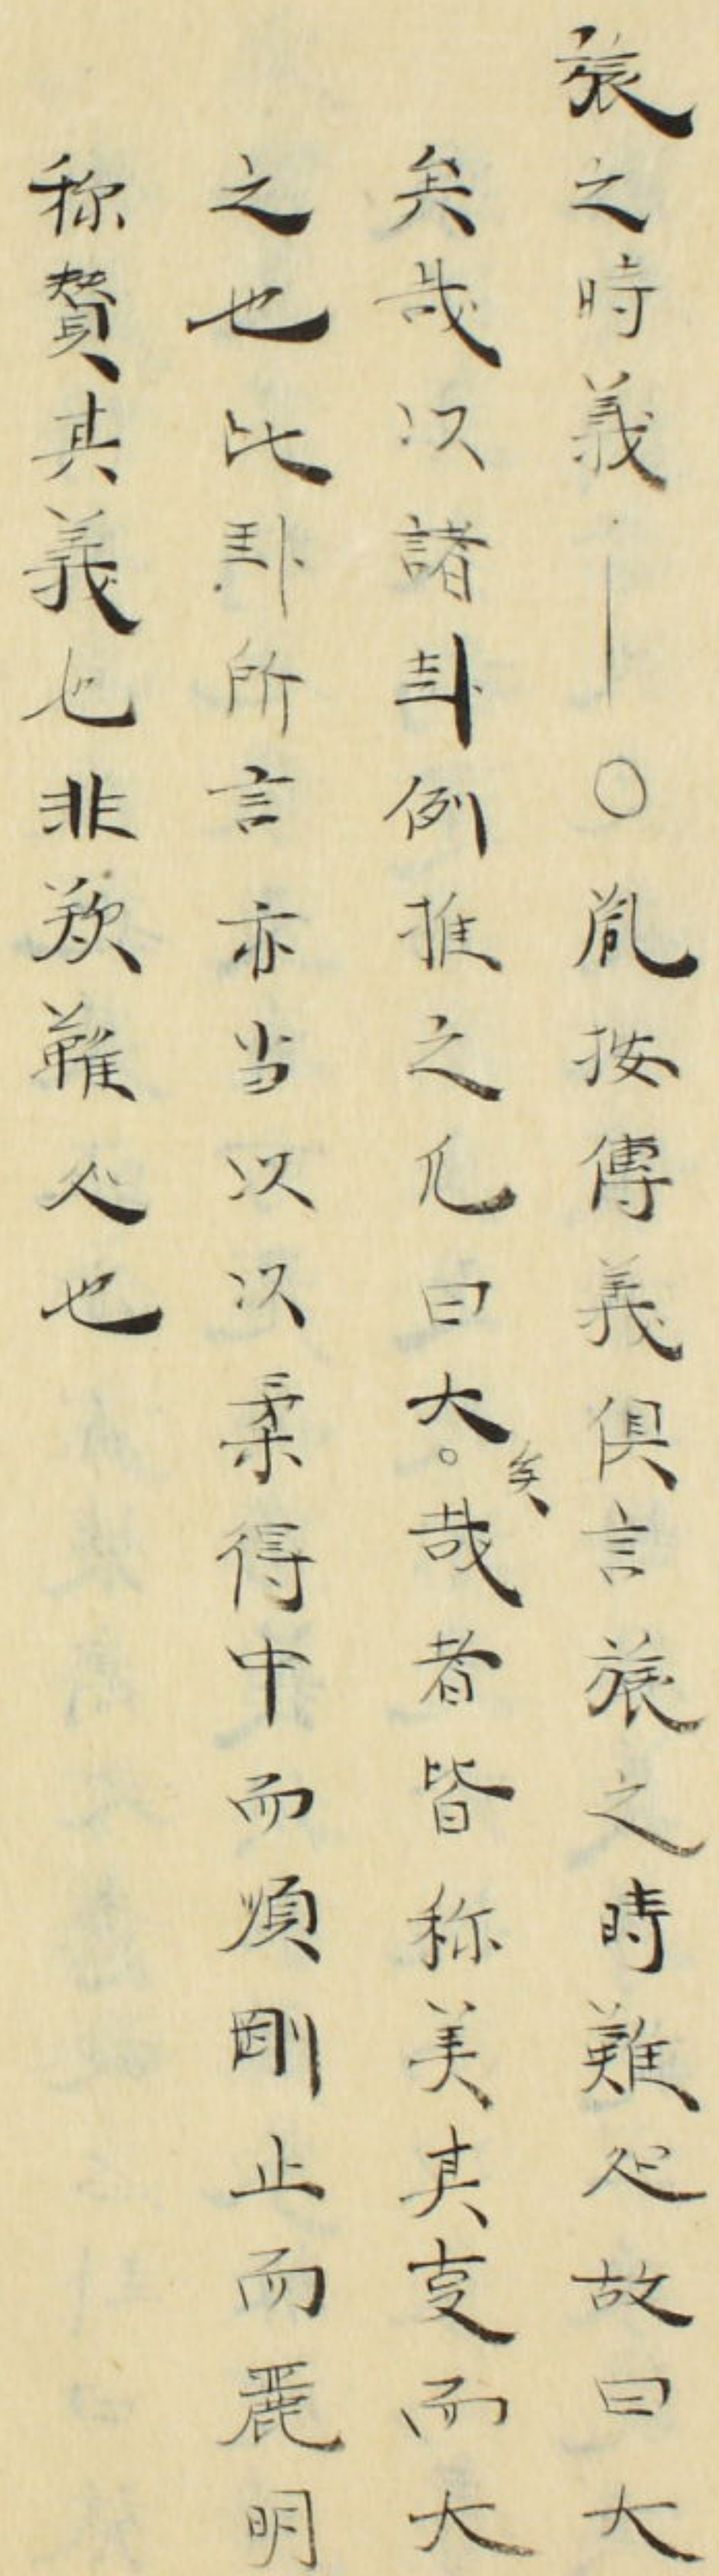 旅之時義――〇胤按傳義俱言旅之時難処故曰大
矣哉以諸卦例推之凡曰大矣哉者皆称美其事而大
之也比卦所言亦当以以柔得中而順剛止而麗明
称贊其義也非歎難処也